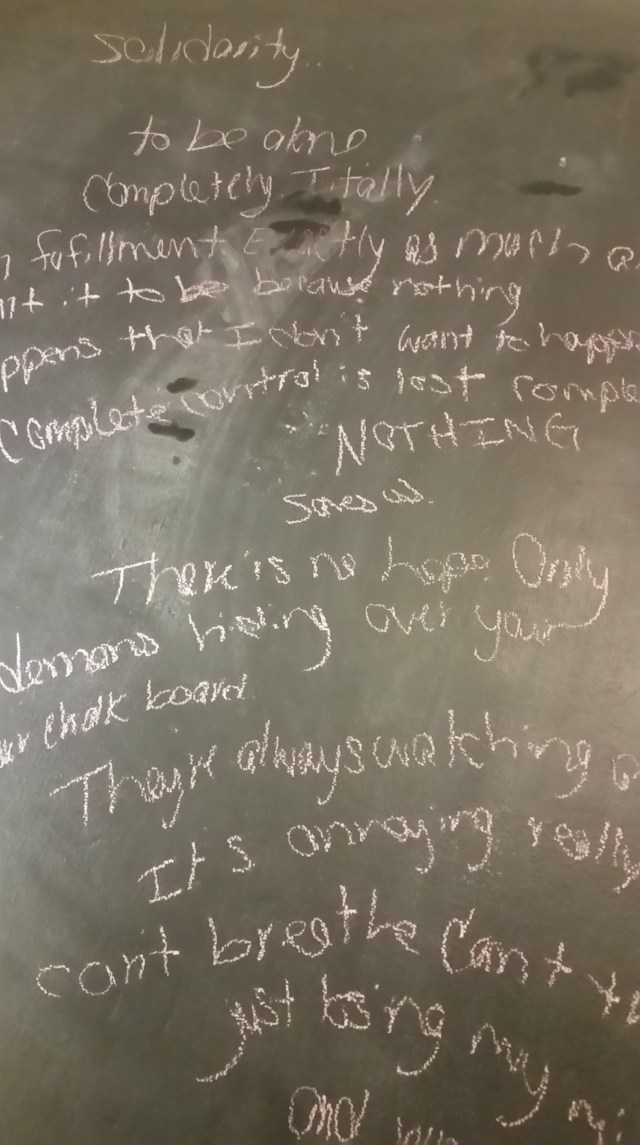 Solidarity..
to be alone
Completely Totally.
fufillment Exactly as much a
nt it to be because nothing
ppens that I don't want to happe
Complete control is lost comple
NOTHING
saves us.
There is no hope. Only
demons hiding over your
ur chalk board.
They're always watching
It's annoying really
can't breathe Can't
just losing my
and